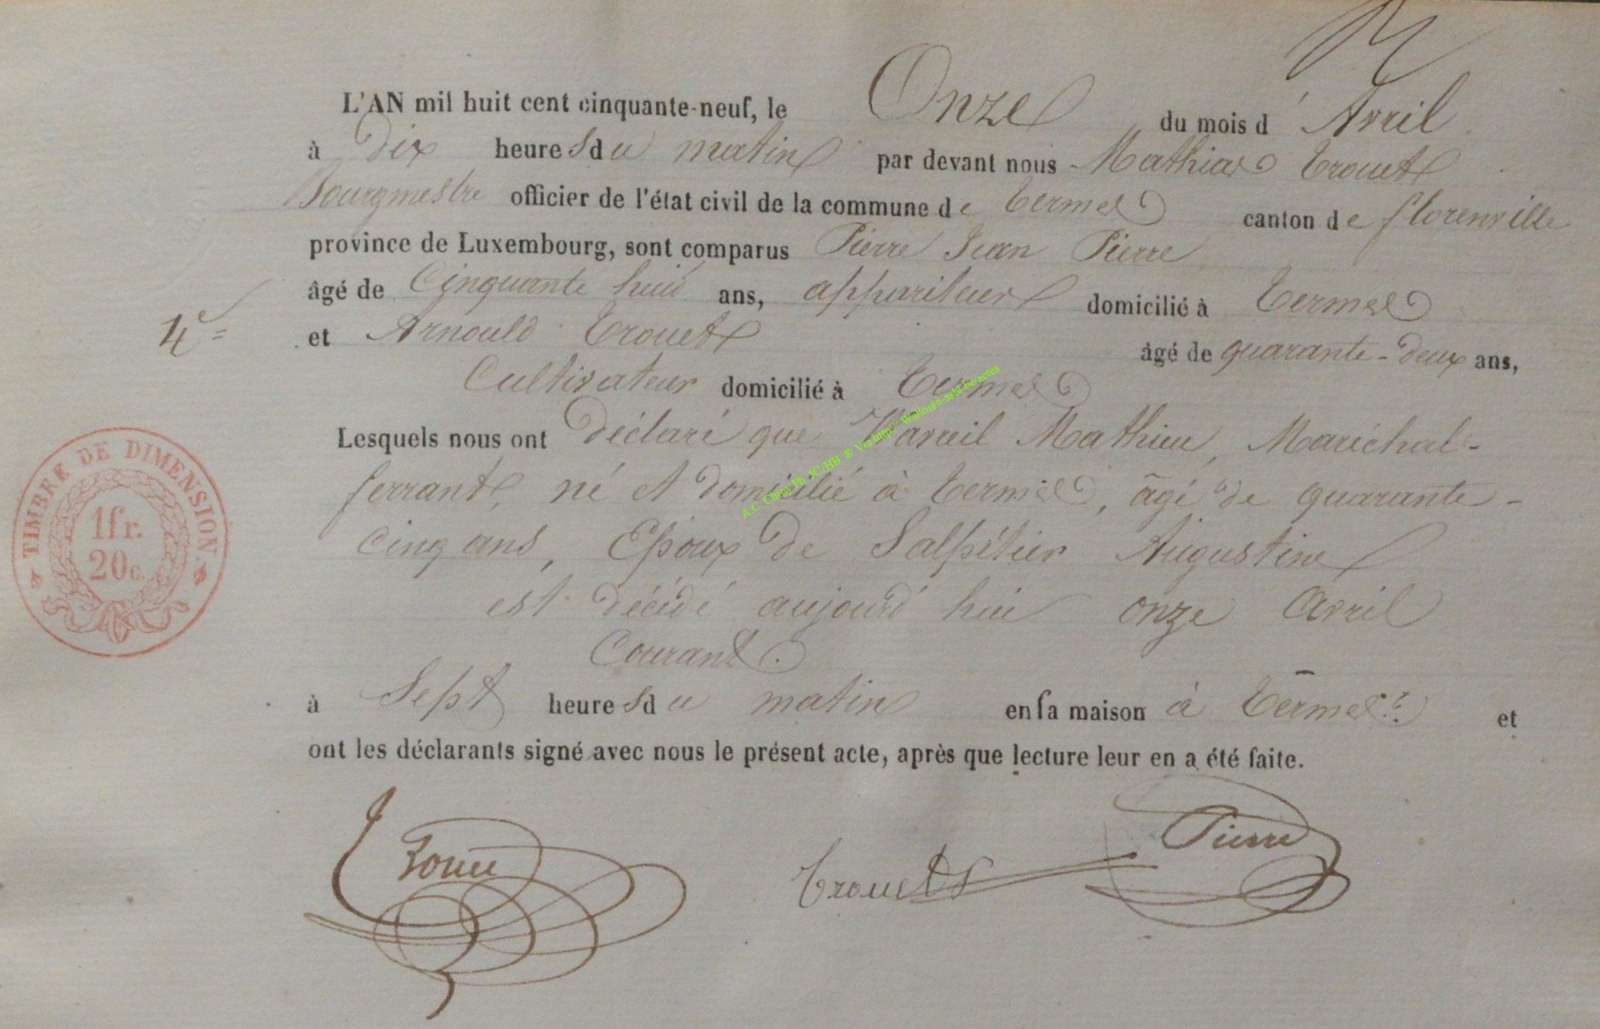 L'AN mil huit cent cinquante-neuf, le Onze du mois d'Avril
à dix heures du matin par devant nous Mathias Trouet
Bourgmestre officier de l'état civil de la commune de Termes canton de florenville
province de Luxembourg, sont comparus Pierre Jean Pierre
âgé de Cinquante huit ans, appariteur domicilié à Termes
4e
et Arnould Trouet âgé de quarante-deux ans,
Cultivateur domicilié à Termes
Lesquels nous ont déclaré que Mathieu, Maréchal-
ferrant, né et domicilié à termes, âgé de quarante-
cinq ans, Epoux de Salpétier Augustine
est décédé aujourd'hui onze avril
Courant.
à Sept heures du matin en sa maison à Termes et
ont les déclarants signé avec nous le présent acte, après que lecture leur en a été faite.
Trouet Pierre
TIMBRE DE DIMENSION
1fr.
20c.